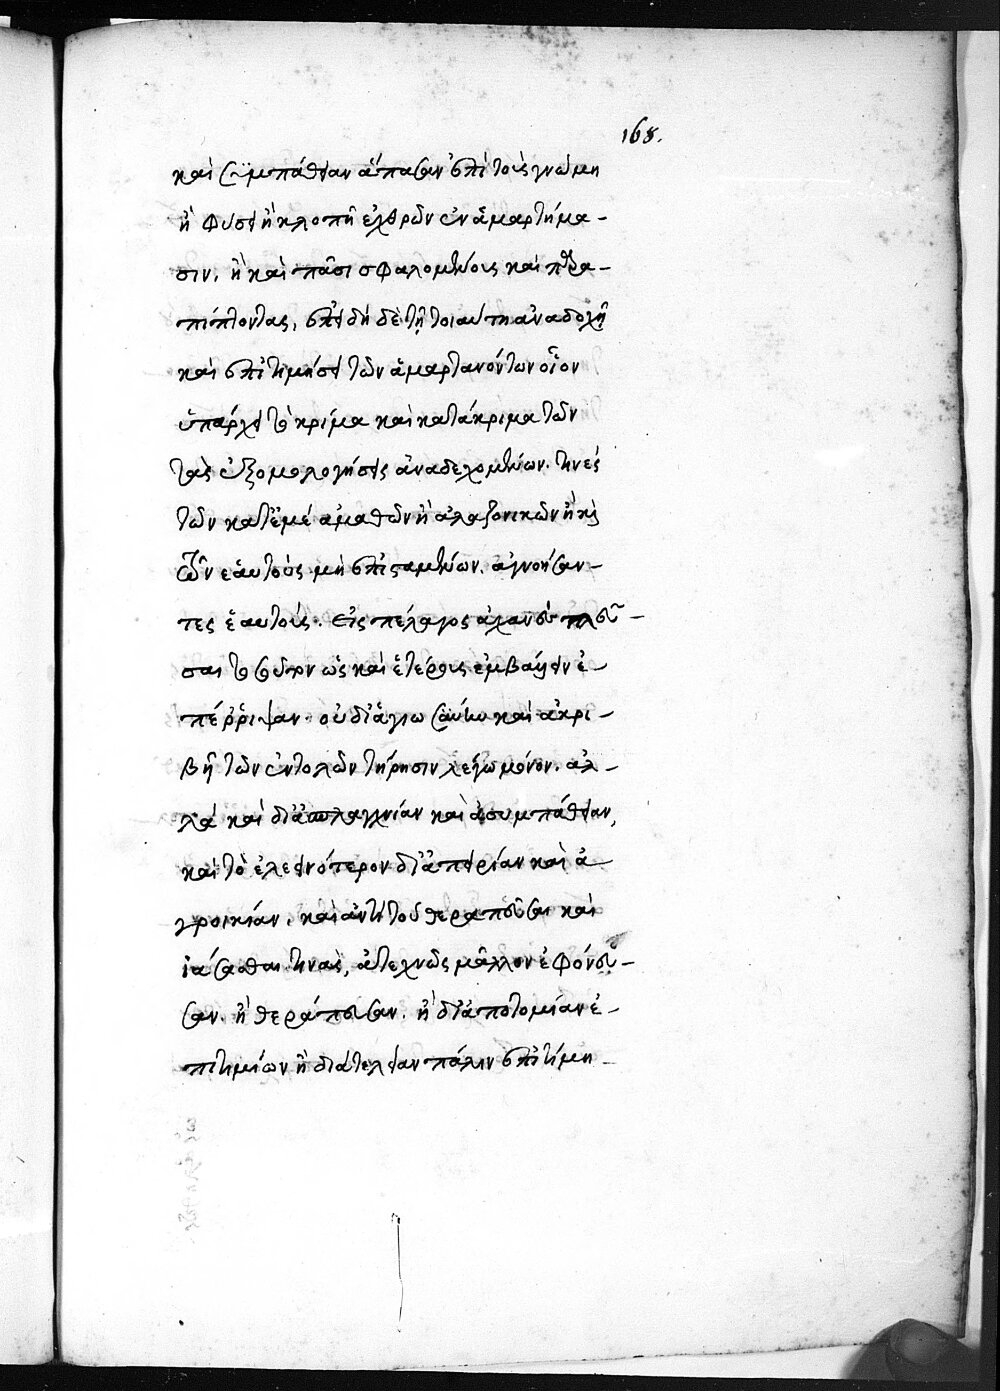 168.
καὶ συμπάθειαν ἅπασαν ἐπὶ τοῖς γνώμη
ἢ φύσει ἢ κλοπῇ ἐχθρῶν ἐν ἁμαρτήμα-
σιν, ἢ καὶ πᾶσι σφαλομένοις καὶ παρα-
πίπτοντας, ἐπειδὴ δὲ τῇ τοιαύτη ἀναδοχῇ
καὶ ἐπιτιμήσει τῶν ἁμαρτανόντων οἷον
ὑπάρχει τὸ κρίμα καὶ κατάκριμα τῶν
τὰς ἐξομολογήσεις ἀναδεχομένων. τινὲς
τῶν κατ' ἐμὲ ἀμαθῶν ἢ ἀλαζονικῶν ἢ καὶ
ἑαυτοὺς μὴ ἐπισταμένων. ἀγνοήσαν-
τες ἑαυτούς. εἰς πέλαγος ἀχανὲς
σαι τὸ ὡς καὶ ἑτέροις ἐμβαλεῖν ἐ-
πέρριψαν. οὐ δι' ἁγίω καὶ ἀκρι-
βῆ τῶν ἐντολῶν τήρησιν λέγω μόνον. ἀλ-
λὰ καὶ δι' ἀσπλαγχνίαν καὶ ἀσυμπάθειαν,
καὶ τὸ ἐλεεινότερον δι' ἀπειρίαν καὶ ἀ-
γροικίαν. καὶ ἀντὶ τοῦ θεραπεῦσαι καὶ
ἰάσασθαι τινὰς, ἀτεχνῶς μᾶλλον ἐφόνευ-
σαν. ἢ θεράπευσαν. ἢ δι' ἀποτομίαν ἐ-
πιτιμίων ἢ δι' ἀτέλειαν πάλιν ἐπιτίμη-